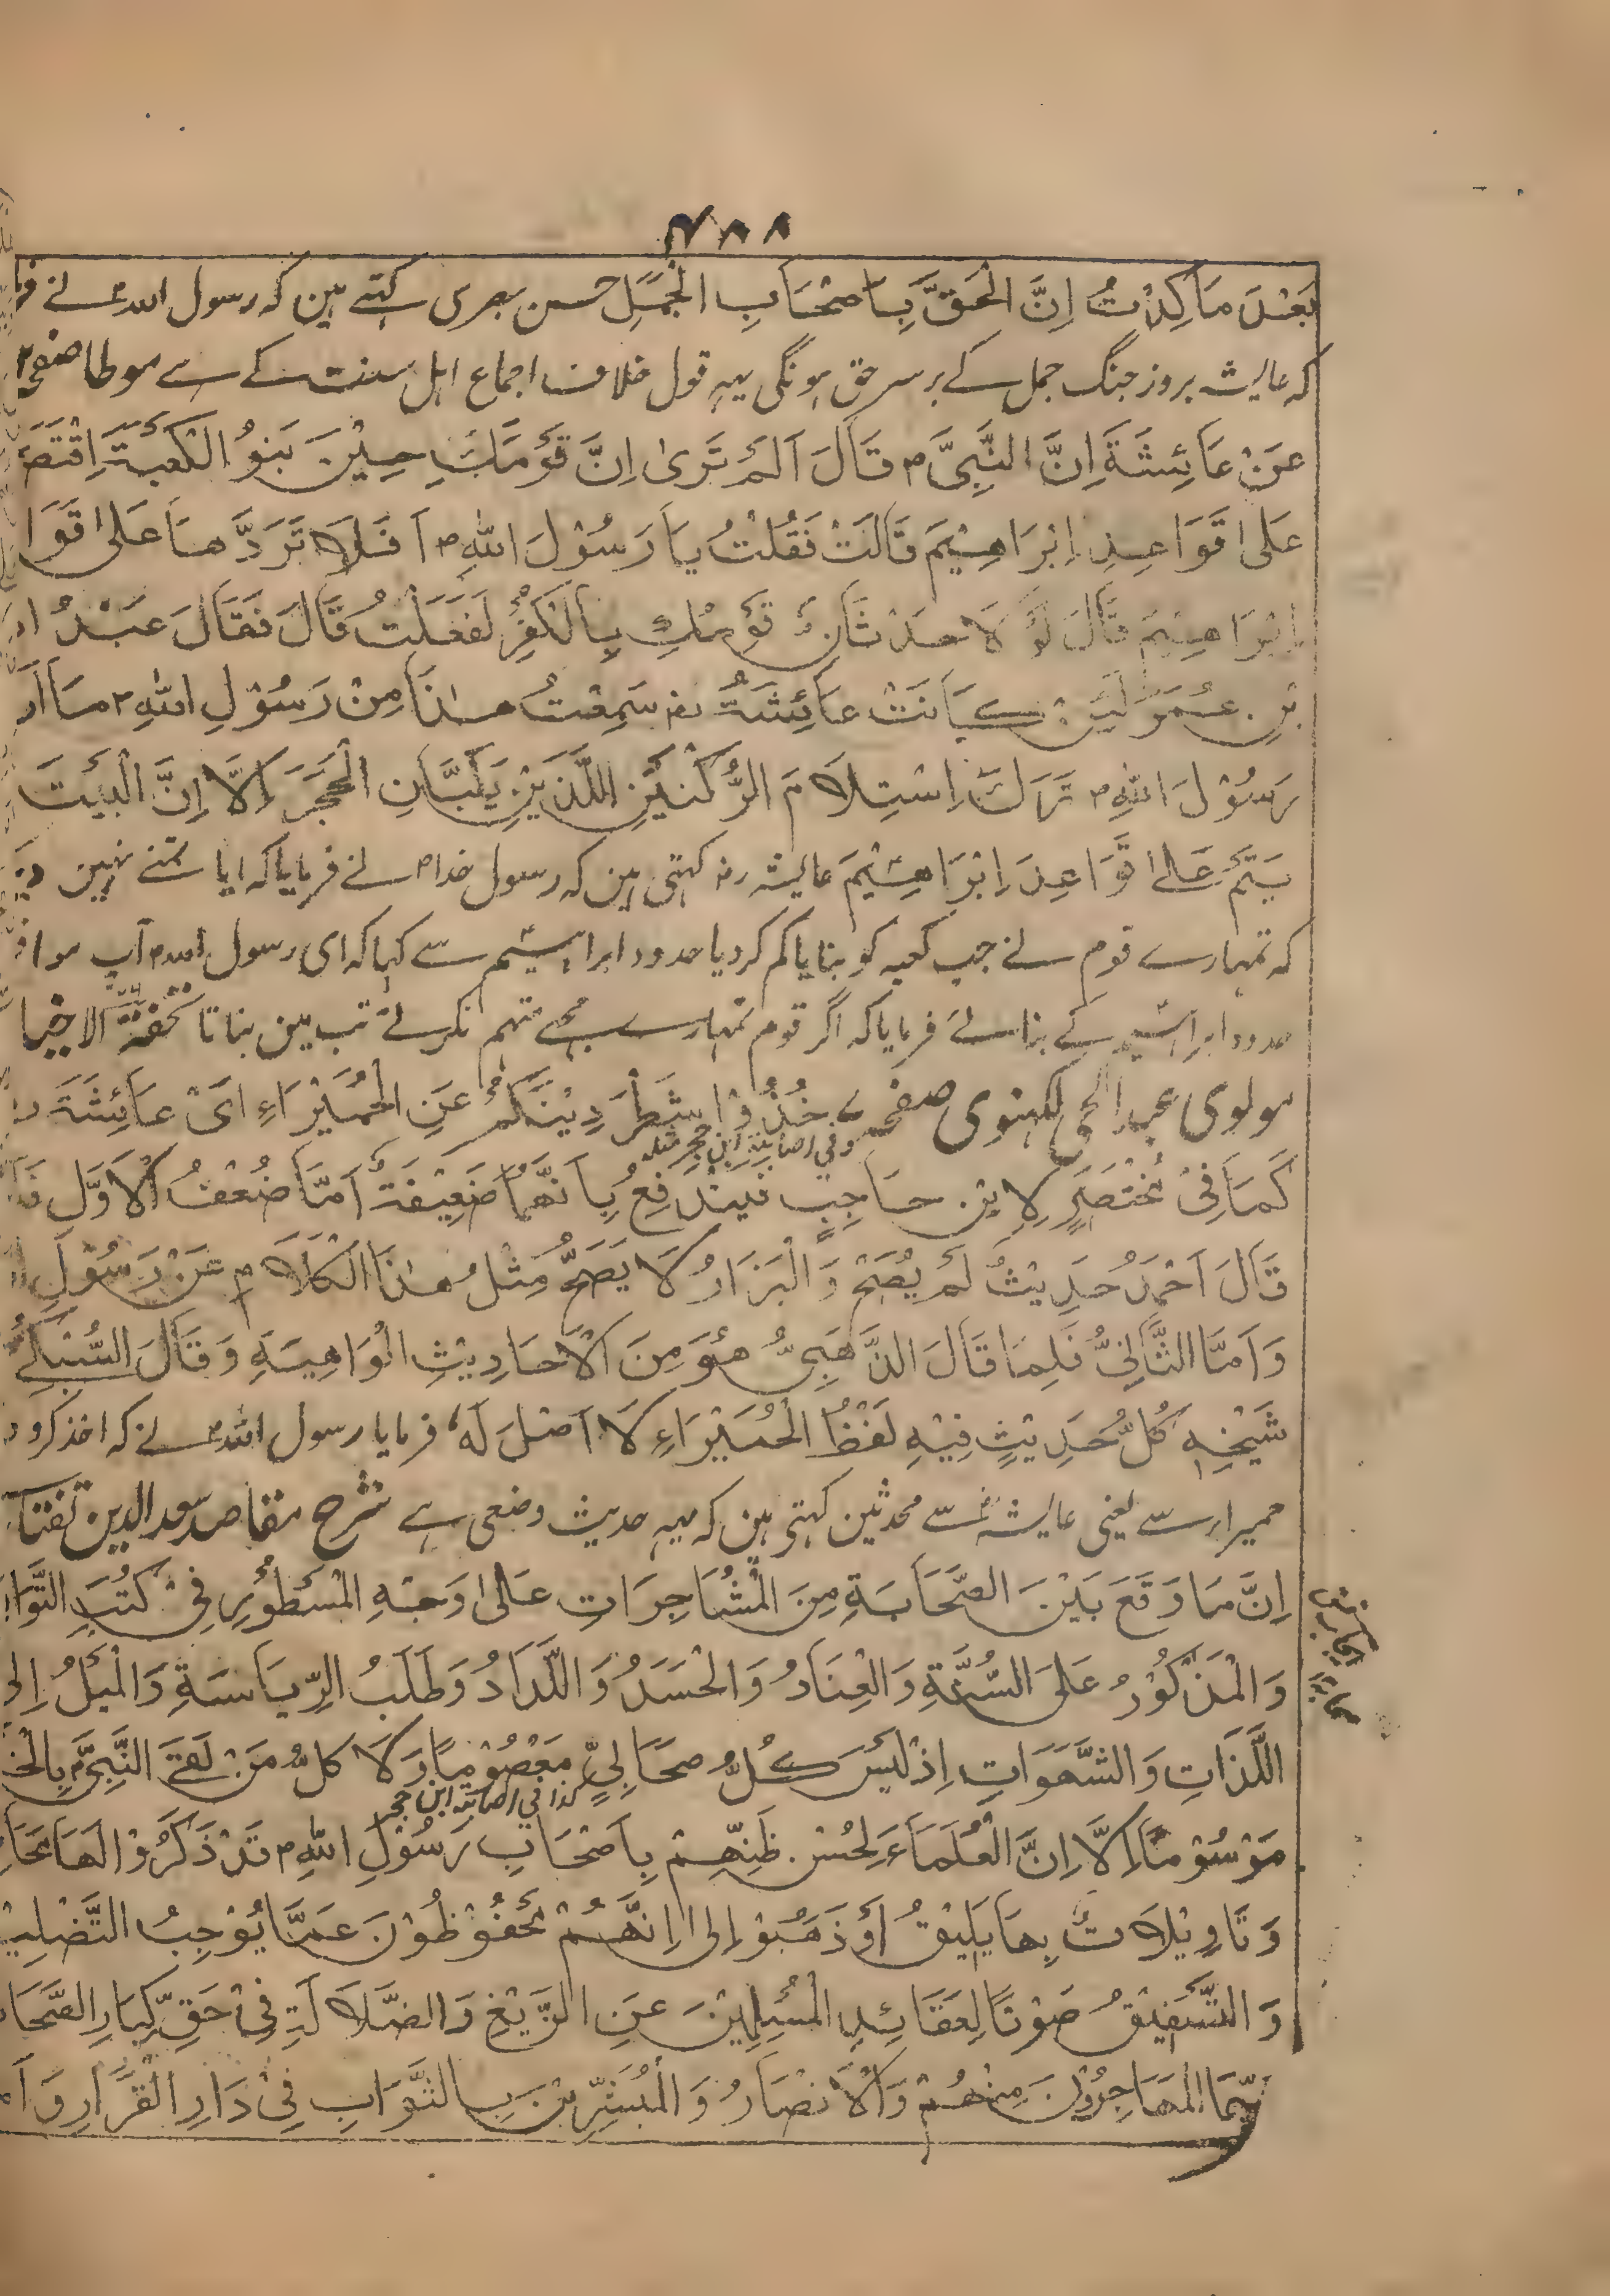 ٧٨٨
بَعْدَ مَا كِدْتُ اِنَّ الْحَقَّ بِاَصْحَابِ الْجَمَلِ حسن بصری کہتے ہین کہ رسول اللہ ؐ نے فرما
کہ عایشہ بروز جنگ جمل کے برسر حق ہونگی یہہ قول خلاف اجماع اہل سنت کے ہے موطا صفحہ
عَنْ عَائِشَةَ اِنَّ النَّبِیَّ م قَالَ اَلَمْ تَرٰی اِنَّ قَوْمَكِ حِیْنَ بَنَوُ الْكَعْبَةَ اِقْتَصَرُ
عَلٰی قَوَاعِدِ اِبْرَاهِیْمَ قَالَتْ فَقُلْتُ یَا رَسُوْلَ اللهِ م اَفَلَا تَرَدَّهَا عَلٰی قَوَا
اِبْرَاهِیْمَ قَالَ لَوْ لَا حدْثَانُ قَوْمُكِ بِالْكُفْرِ لَفَعَلْتُ قَالَ فَقَالَ عَبْدُ ا
بْنِ عُمَرَ لَئِنْ كَانَتْ عَائِشَةُ رض سَمِعْتُ هٰذَا مِنْ رَسُوْلِ اللهِ م مَا اَر
رَسُوْلَ اللهِ م تَرَكَ اِسْتِلَامَ الرُّكْنَیْنِ اللَّذَیْنِ یَلَیَانِ الْحَجَرَ اِلَّا اِنَّ الْبَیْتَ
یَتَمَّ عَلٰی قَوَاعِدَ اِبْرَاهِیْمَ عایشہ رض کہتی ہین کہ رسول خدا م نے فرمایا کہ ایا تمنے نہین
کہ تمہارے قوم نے جب کعبہ کو بنایا کم کردیا حدود ابراہیم سے کہا کہ ای رسول اللہ م آپ موا
حدود ابراہیم کے بنائے فرمایا کہ اگر قوم تمہارے مجھے متہم نکرتے تب مین بناتا تحفۃ الاخیا
مولوی عبد الحی لکہنوی صفحہ ۷ خُذُوْا شَطْرَ دِیْنَكُمْ عَنِ الْحُمَیْرَاءِ اَیْ عَائِشَةَ
وفی اصابۃ ابن حجر مثلہ
كَمَا فِیْ مُخْتَصَرٍ لِابْنِ حَاجِبٍ فَیَنْدَفِعُ بِاَنَّهُمَا ضَعِیْفَةٌ اَمَّا ضُعْفُ الْاَوَّلِ فَ
قَالَ اَحْمَدُ حَدِیْثٌ لَمْ یُصِحْ وَالْبَزَارُ لَا یَصَحُّ مِثْلُ هٰذَا الْكَلَامِ عَنْ رَسُوْلِ ا
وَاَمَّا الثَّانِیُّ فَلِمَا قَالَ الذَّهَبِیُّ هُوَ مِنَ الْاَحَادِیْثِ الْوَاهِیَةِ وَقَالَ السُّبْكِیْ
شَیْخِهٖ كُلُّ حَدِیْثٍ فِیْهِ لَفْظُ الْحُمَیْرَاءِ لَا اَصْلَ لَهٗ فرمایا رسول اللہ م نے کہ اخذ کرو د
حمیراء سے یعنی عایشہ رض سے محدثین کہتی ہین کہ یہہ حدیث وضعی ہے شرح مقاصد سعد الدین تفتا
اِنَّ مَا وَقَعَ بَیْنَ الصَّحَابَةِ مِنَ الْمُشَاجِرَاتِ عَلٰی وَجْهِ الْمَسْطُوْرِ فِیْ كُتُبِ التَّوَا
وَالْمَذْكُوْرُ عَلَی السُّرْعَةِ وَالْعِنَادُ وَالْحَسَدُ وَاللَّدَادُ وَطَلَبُ الرِّیَاسَةِ وَالْمَیْلُ اِلی
اللَّذَاتِ وَالشَّهَوَاتِ اِذْ لَیْسَ كُلُّ صَحَابِیٍّ مَعْصُوْمًا وَلَا كُلُّ مَنْ لَقَی النَّبِیَّ م بِالْخَ
کذا فی اصابۃ ابن حجر
مَوْسُوْمًا اِلَّا اِنَّ الْعُلَمَاءَ لِحُسْنِ ظَنِّهِمْ بِاَصْحَابِ رَسُوْلِ اللهِ م قَدْ ذَكَرُوْا لَهَا مَحَا
وَتَاوِیْلَاتٌ بِهَا یَلِیْقُ اَوْ ذَهَبُوْ اِلٰی اِنَّهُمْ مَحْفُوْظُوْنَ عَمَّا یُوْجِبُ التَّضْلِیْ
وَالتَّفْسِیْقُ صَوْنًا لِعَقَائِدِ الْمُسْلِمِیْنَ عَنِ الزَّیْغِ وَالضَّلَالَةِ فِیْ حَقِّ كِبَارِ الصَّحَا
سِیَّمَا الْمُهَاجِرُوْنَ مِنْهُمْ وَالْاَنْصَارُ وَالْمُبَشِّرِیْنَ بِالثَّوَابِ فِیْ دَارِ الْقَرَارِ وَاَ